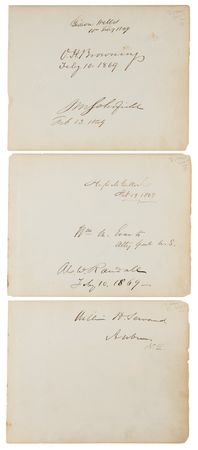 Gideon Welles
10 Feby 1869
O. H. Browning
Feby 10. 1869
J M Schofield
Feb 13. 1869
Hugh McCulloch
Feb 13 1869
Wm M. Evarts
Atty Genl U.S.
Alex W Randall
Feby 10. 1869
William H Seward
Auburn